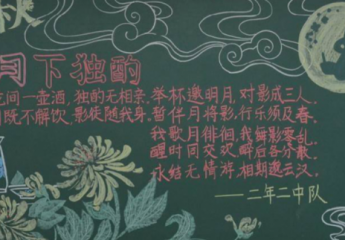 月下独酌
间一壶酒,独酌无相亲.举杯邀明月,对影成三人.
既不解饮,影徒随我身.暂伴月将影,行乐须及春.
我歌月徘徊,我舞影零乱.
醒时同交欢,醉后各分散.
永结无情游,相期邈云汉.
——二年二中队